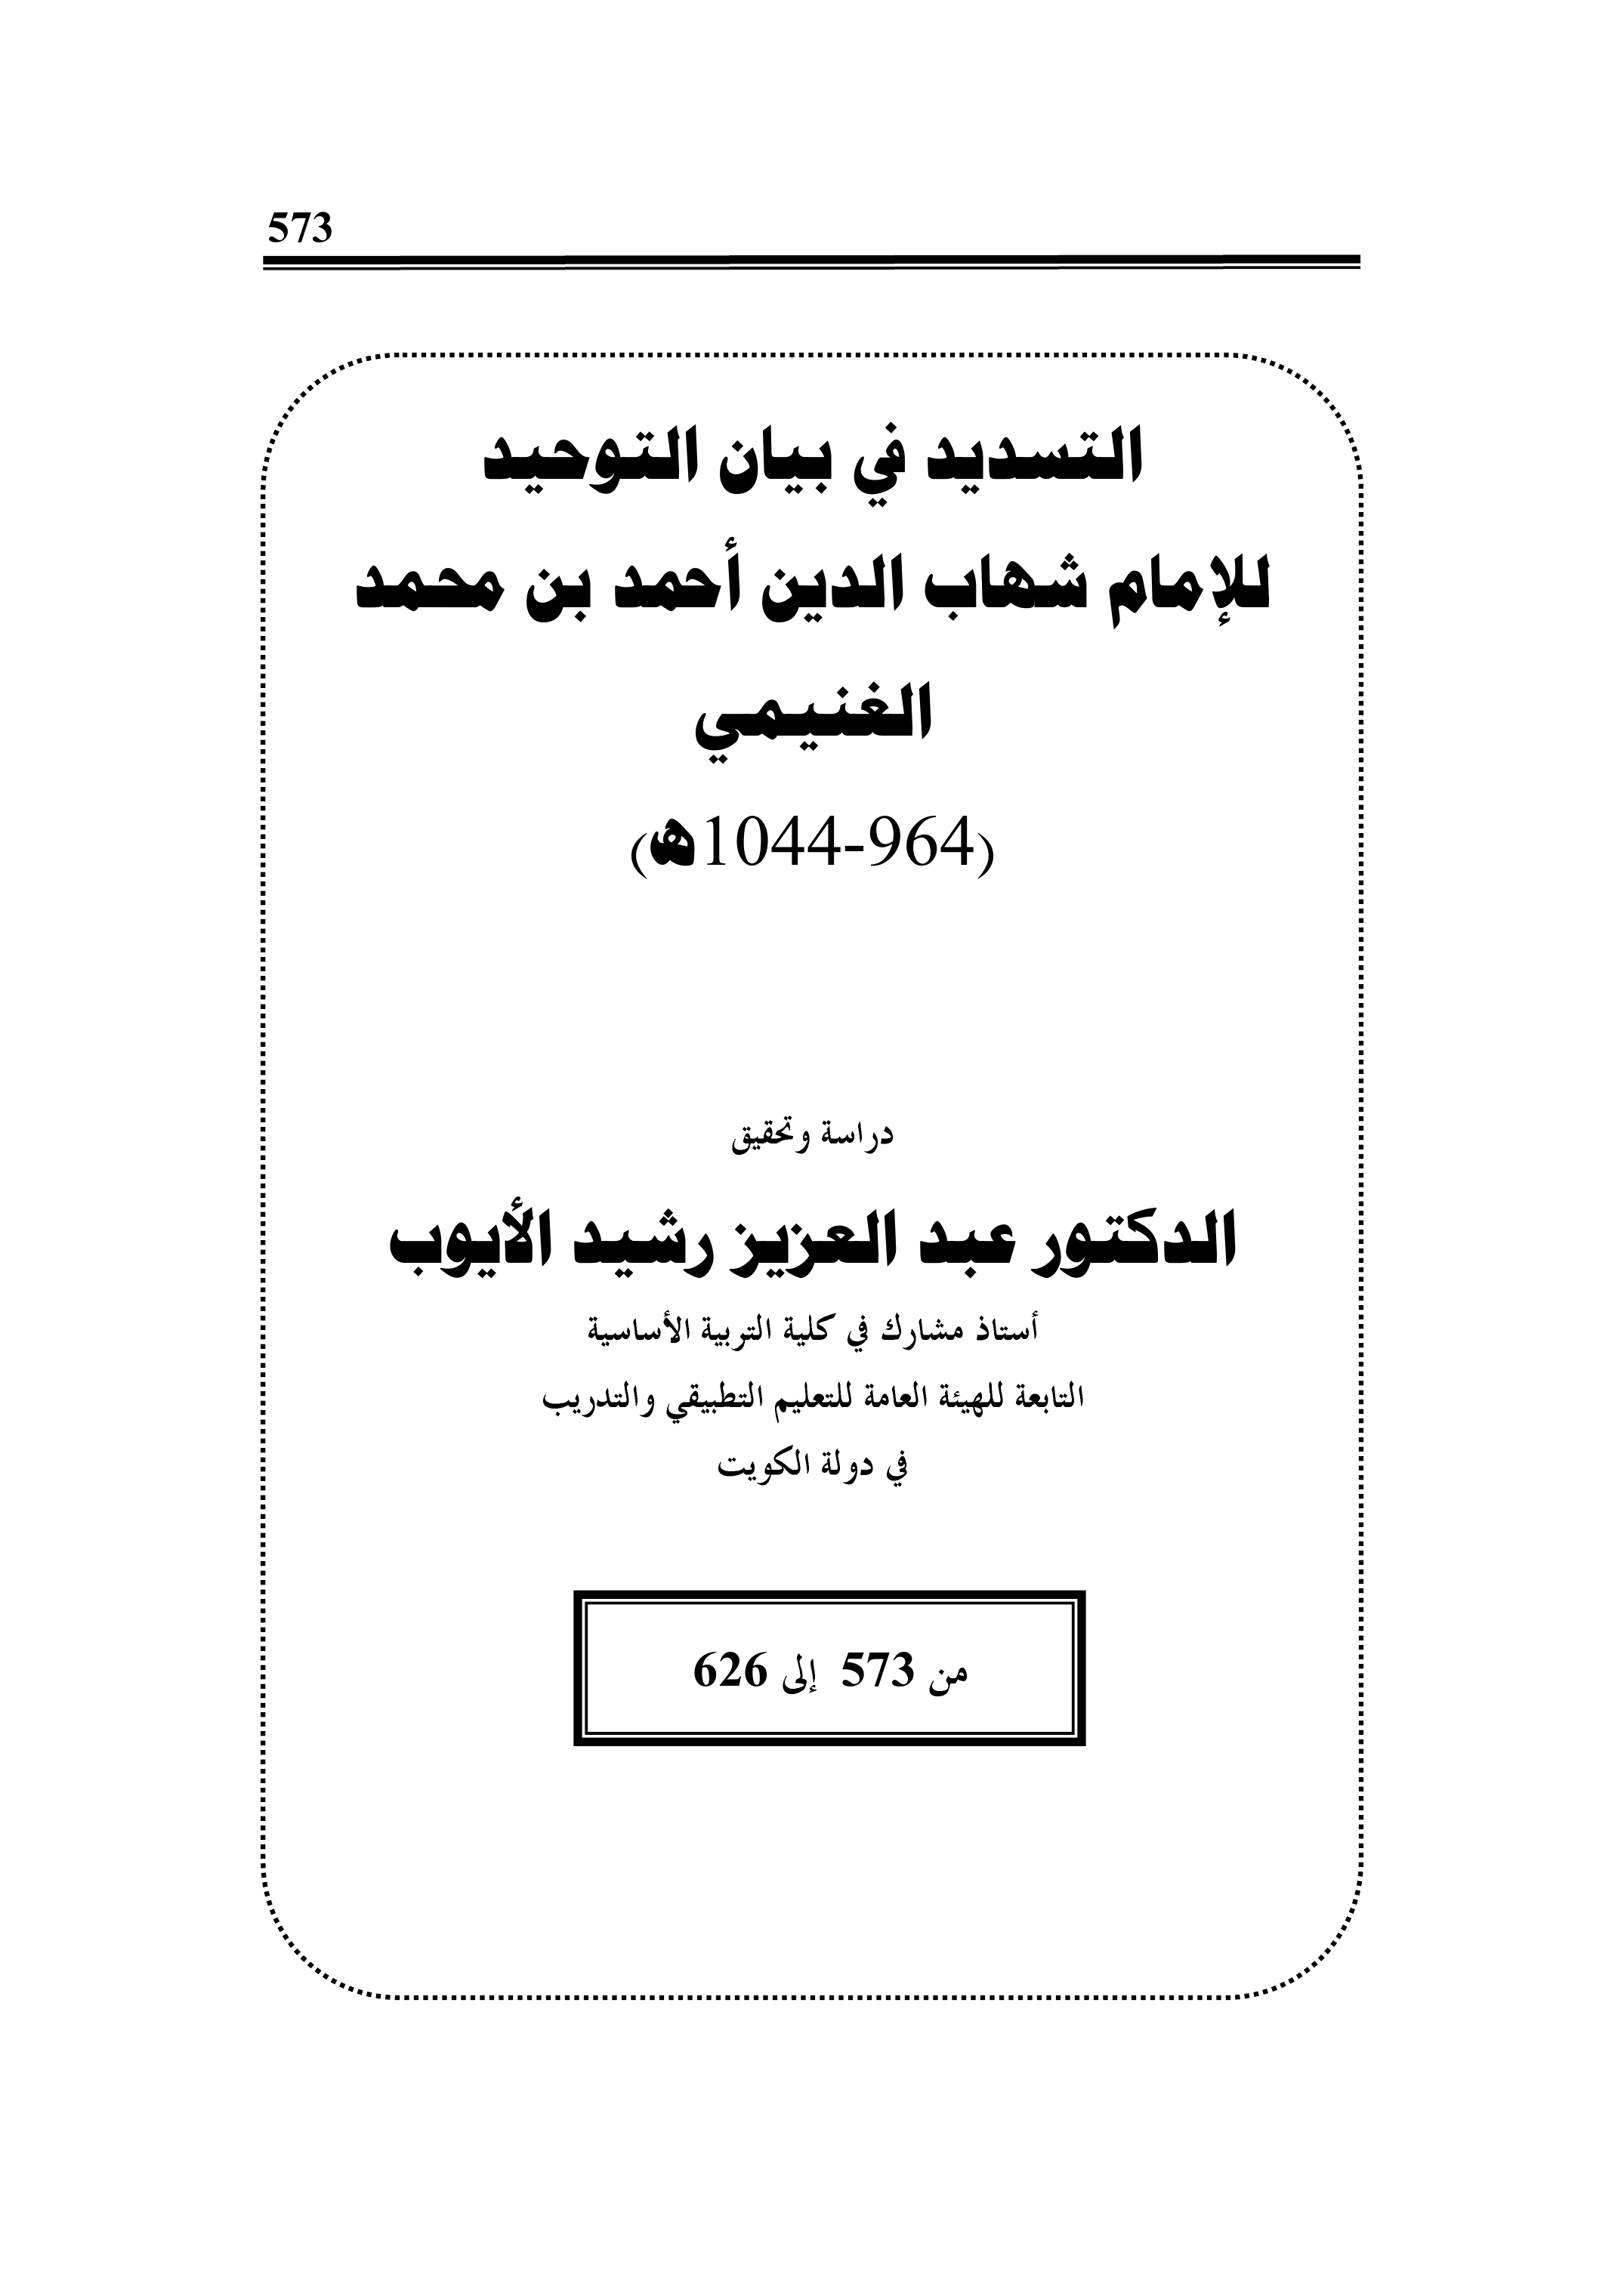 573
التسديد في بيان التوحيد
للإمام شهاب الدين أحمد بن محمد
الغنيمي
(964-1044هـ)
دراسة وتحقيق
الدكتور عبد العزيز رشيد الأيوب
أستاذ مشارك في كلية التربية الأساسية
التابعة للهيئة العامة للتعليم التطبيقي والتدريب
في دولة الكويت
من 573 إلى 626